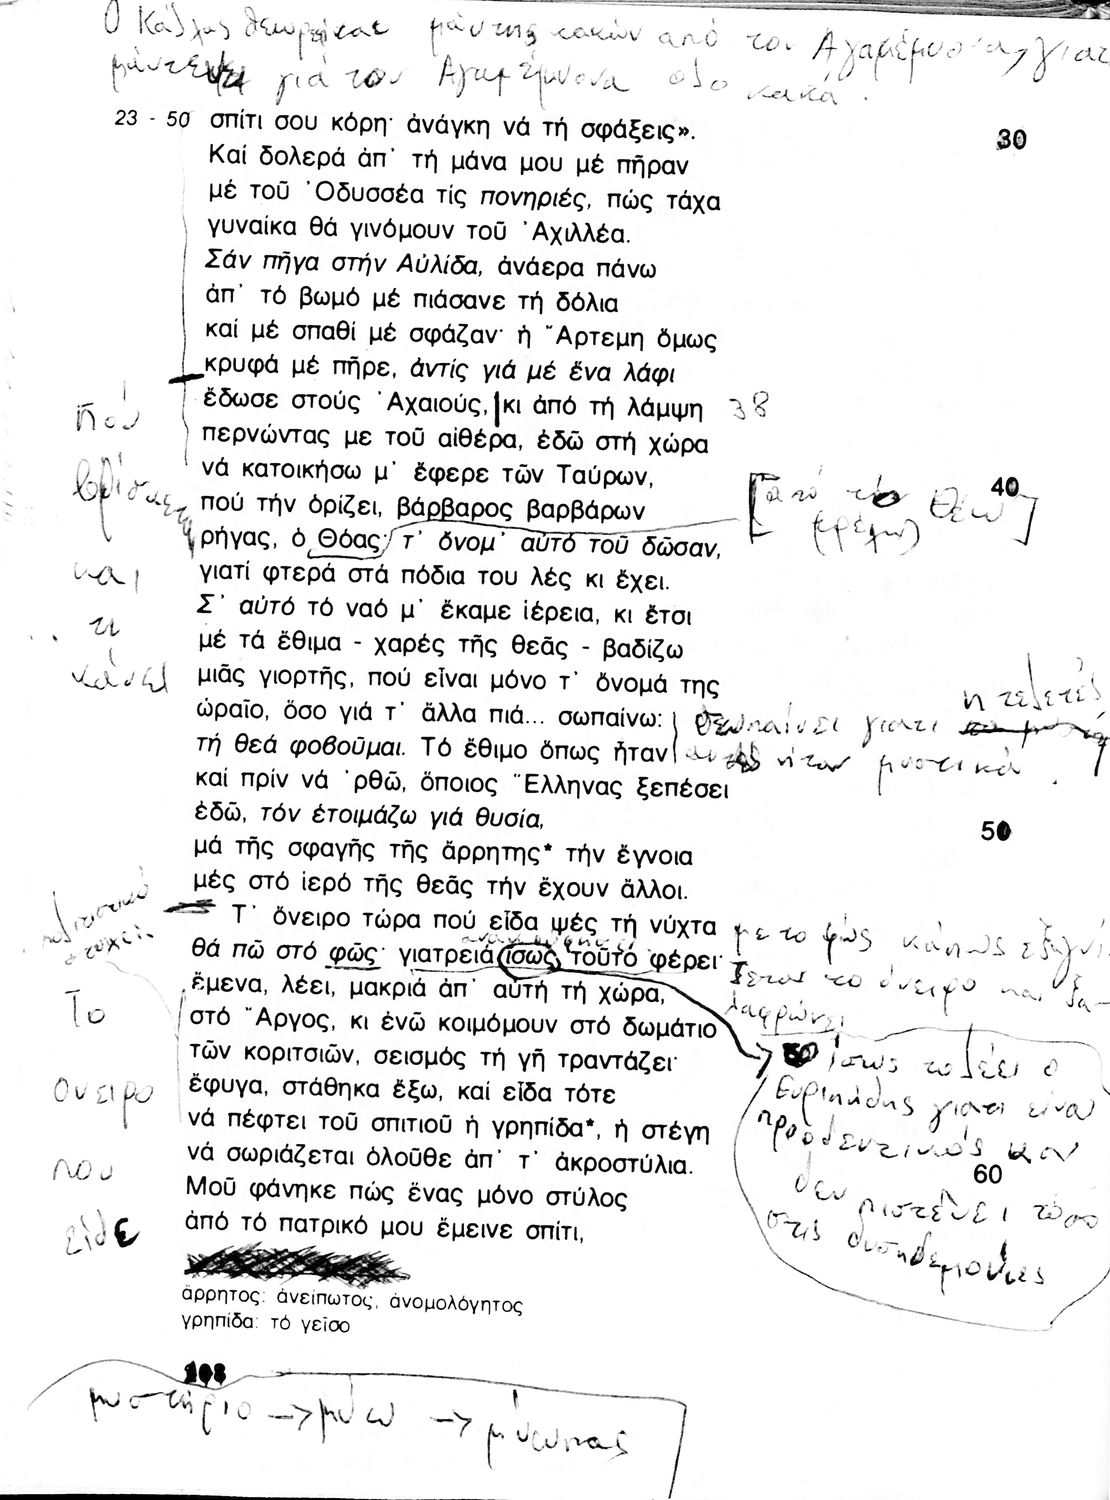 Ο Κάλχας θεωρείται μάντης κακών από τον Αγαμέμνονα, γιατί
μάντευε για τον Αγαμέμνονα όλο κακά.
23 - 50 σπίτι σου κόρη· ἀνάγκη νά τή σφάξεις». 30
Καί δολερά ἀπ᾿ τή μάνα μου μέ πῆραν
μέ τοῦ ᾿Οδυσσέα τίς πονηριές, πώς τάχα
γυναίκα θά γινόμουν τοῦ ᾿Αχιλλέα.
Σάν πῆγα στήν Αὐλίδα, ἀνάερα πάνω
ἀπ᾿ τό βωμό μέ πιάσανε τή δόλια
καί μέ σπαθί μέ σφάζαν· ἡ ῎Αρτεμη ὅμως
κρυφά μέ πῆρε, ἀντίς γιά μέ ἕνα λάφι
ἔδωσε στούς ᾿Αχαιούς, κι ἀπό τή λάμψη 38
περνώντας με τοῦ αἰθέρα, ἐδῶ στή χώρα
νά κατοικήσω μ᾿ ἔφερε τῶν Ταύρων, 40
πού τήν ὁρίζει, βάρβαρος βαρβάρων
ρήγας, ὁ Θόας· τ᾿ ὄνομ᾿ αὐτό τοῦ δῶσαν,
γιατί φτερά στά πόδια του λές κι ἔχει.
Σ᾿ αὐτό τό ναό μ᾿ ἔκαμε ἱέρεια, κι ἔτσι
μέ τά ἔθιμα - χαρές τῆς θεᾶς - βαδίζω
μιᾶς γιορτῆς, πού εἶναι μόνο τ᾿ ὄνομά της
ὡραῖο, ὅσο γιά τ᾿ ἄλλα πιά... σωπαίνω:
τή θεά φοβοῦμαι. Τό ἔθιμο ὅπως ἦταν
καί πρίν νά ᾿ρθῶ, ὅποιος ῞Ελληνας ξεπέσει
ἐδῶ, τόν ἑτοιμάζω γιά θυσία, 50
μά τῆς σφαγῆς τῆς ἄρρητης* τήν ἔγνοια
μές στό ἱερό τῆς θεᾶς τήν ἔχουν ἄλλοι.
Τ᾿ ὄνειρο τώρα πού εἶδα ψές τή νύχτα
θά πῶ στό φῶς· γιατρειά ἴσως τοῦτο φέρει·
ἔμενα, λέει, μακριά ἀπ᾿ αὐτή τή χώρα,
στό ῎Αργος, κι ἐνῶ κοιμόμουν στό δωμάτιο
τῶν κοριτσιῶν, σεισμός τή γῆ τραντάζει·
ἔφυγα, στάθηκα ἔξω, καί εἶδα τότε
νά πέφτει τοῦ σπιτιοῦ ἡ γρηπίδα*, ἡ στέγη
νά σωριάζεται ὁλοῦθε ἀπ᾿ τ᾿ ἀκροστύλια. 60
Μοῦ φάνηκε πώς ἕνας μόνο στύλος
ἀπό τό πατρικό μου ἔμεινε σπίτι,
ἄρρητος: ἀνείπωτος, ἀνομολόγητος
γρηπίδα: τό γεῖσο
108
μυστήριο -> μύω -> μύωπας
Πού
βρίσκεται
και
τι
κάνει
[από το θέω
(τρέχω)]
σωπαίνει γιατί η τελετές
αυτές ήταν μυστικά.
πολιτιστικό
στοιχεί.
Το
όνειρο
που
είδε
με το φώς κάπως εξαγνί-
ζεται το όνειρο και ξα-
λαφρώνει
ίσως το λέει ο
Ευριπίδης γιατί είναι
προοδευτικός και
δεν πιστεύει τόσο
στις δυσηδεμονίες